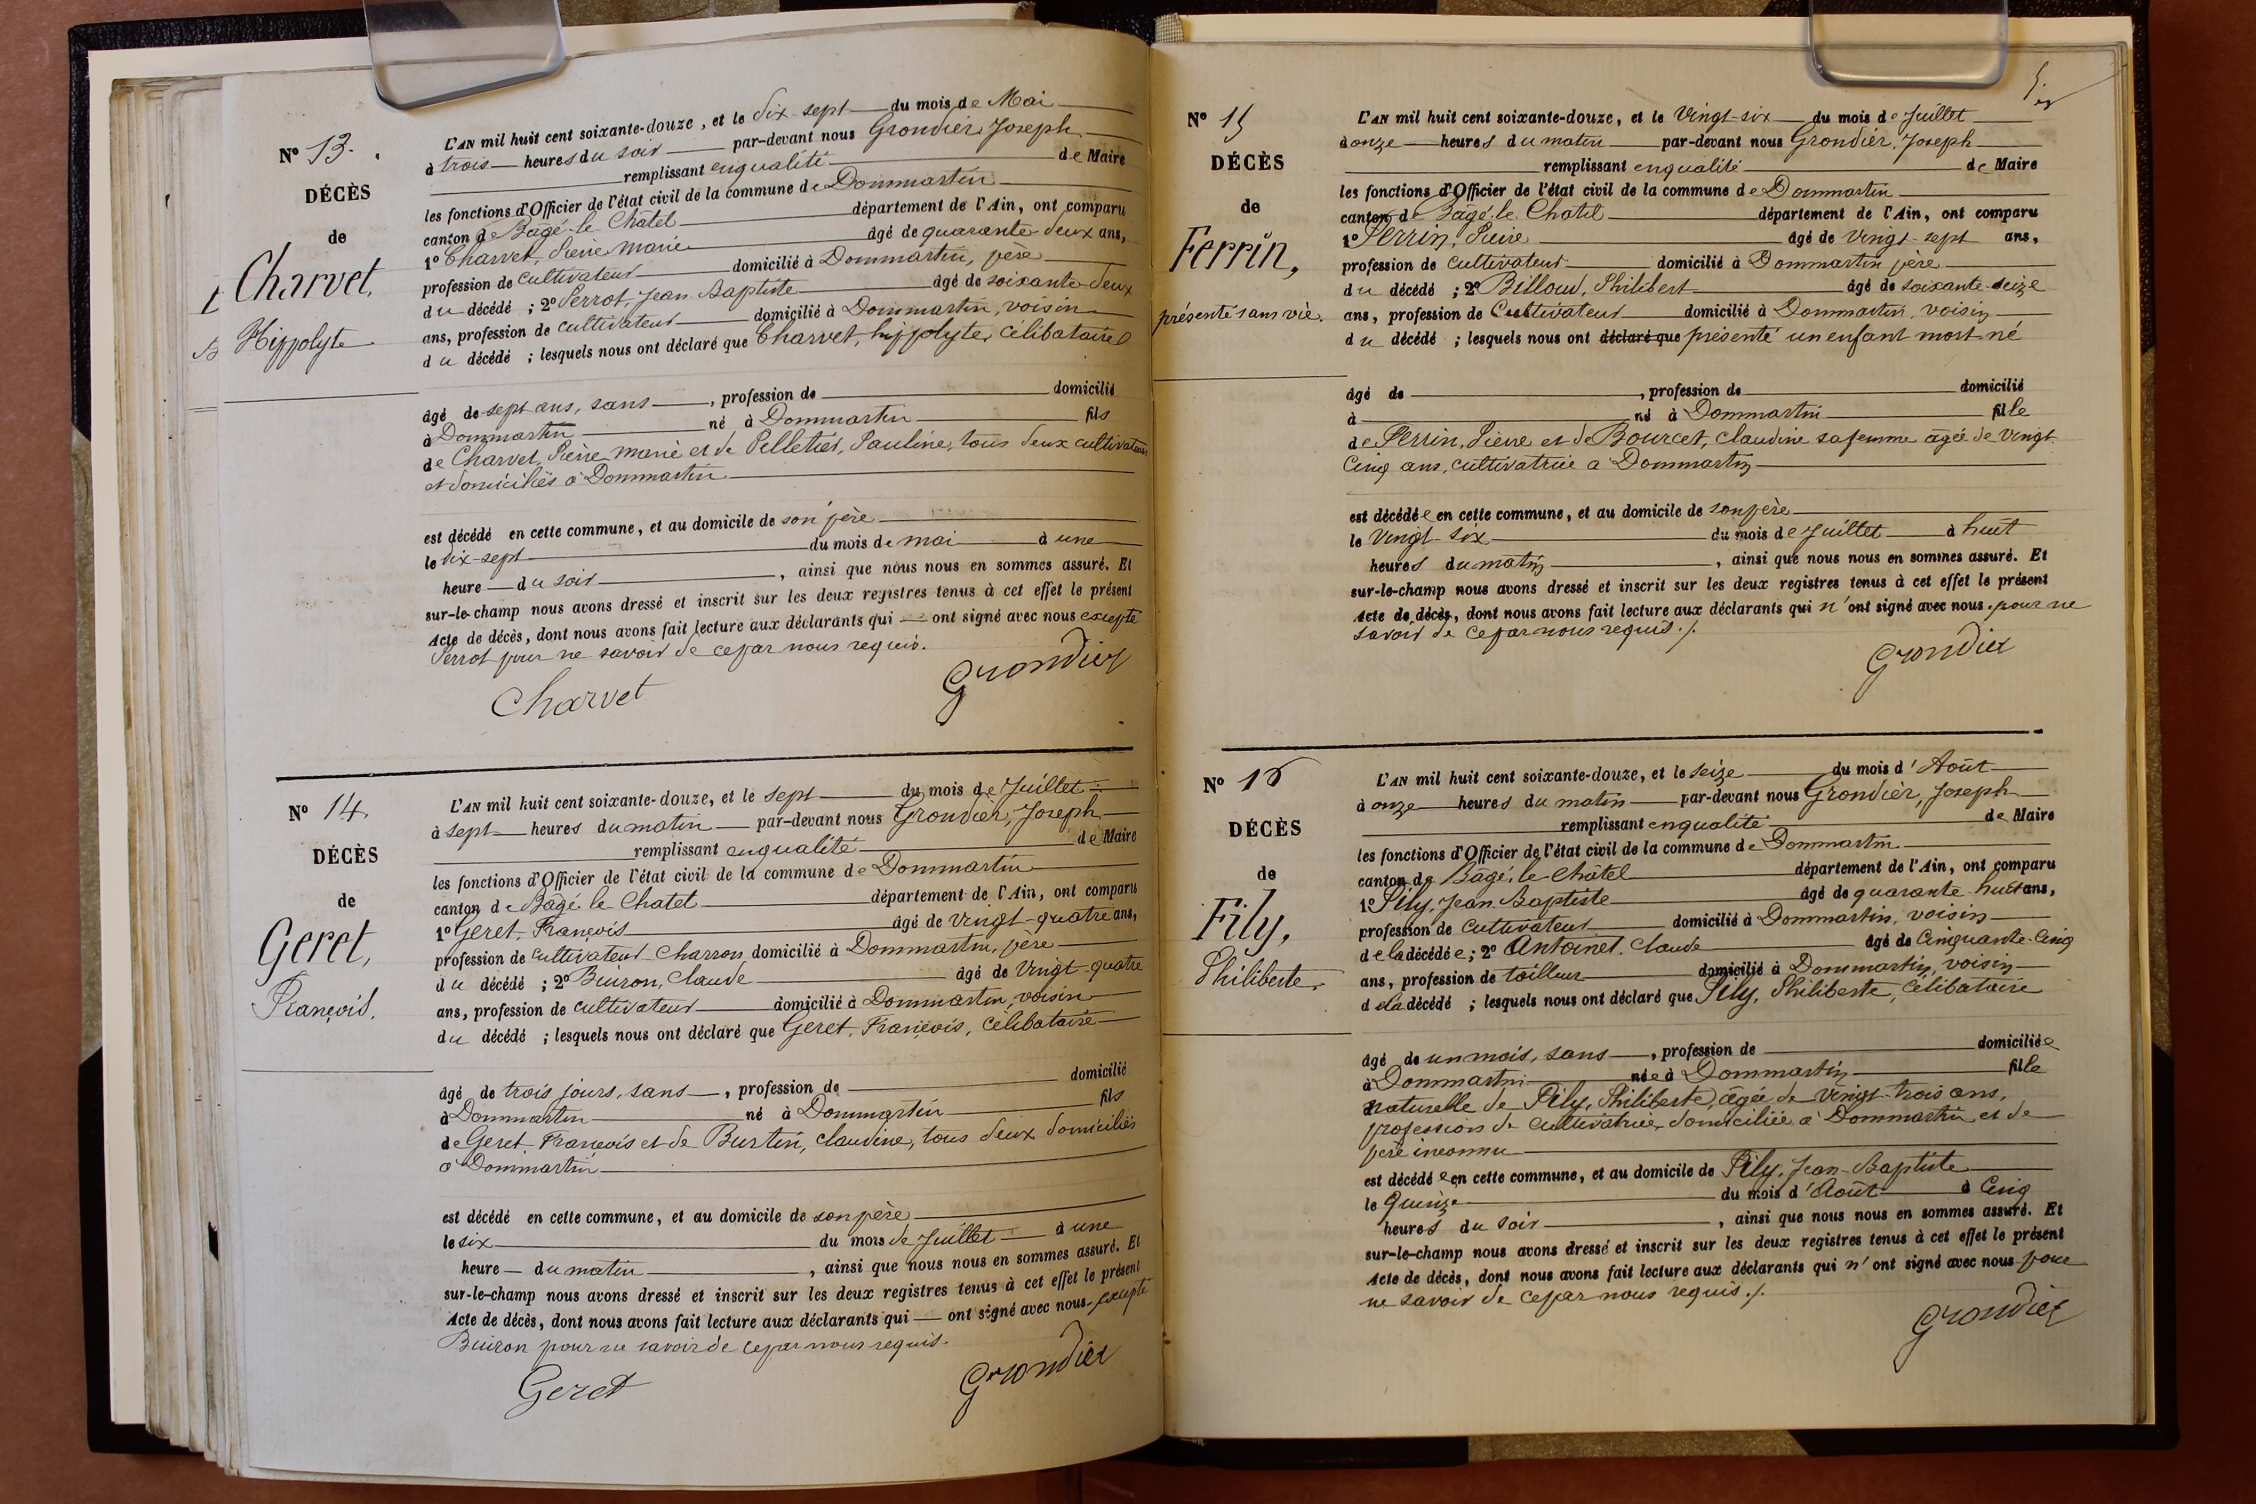 Nº 13.
DÉCÈS
de
Charvet,
Hippolyte
L'AN mil huit cent soixante-douze, et le dix sept du mois de Mai
à trois heures du soir par-devant nous Grondier, Joseph
remplissant en qualité de Maire
les fonctions d'Officier de l'état civil de la commune de Dommartin
canton de Bâgé-le Châtel département de l'Ain, ont comparu
1º Charvet, Pierre Marie âgé de quarante deux ans,
profession de cultivateur domicilié à Dommartin, père
du décédé ; 2º Perrot, Jean Baptiste âgé de soixante-deux
ans, profession de cultivateur domicilié à Dommartin, voisin
du décédé ; lesquels nous ont déclaré que Charvet, hippolyte, célibataire
âgé de sept ans, sans , profession de domicilié
à Dommartin né à Dommartin fils
de Charvet, Pierre marie et de Pelletier, Pauline, tous deux cultivateurs
et domiciliés à Dommartin
est décédé en cette commune, et au domicile de son père
le dix-sept du mois de mai à une
heure du soir , ainsi que nous nous en sommes assuré. Et
sur-le-champ nous avons dressé et inscrit sur les deux registres tenus à cet effet le présent
Acte de décès, dont nous avons fait lecture aux déclarants qui ont signé avec nous excepté
Perrot pour ne savoir de ce par nous requis.
Charvet Grondier
Nº 14.
DÉCÈS
de
Geret,
François.
L'AN mil huit cent soixante-douze, et le sept du mois de Juillet
à sept heures du matin par-devant nous Grondier, Joseph
remplissant en qualité de Maire
les fonctions d'Officier de l'état civil de la commune de Dommartin
canton de Bâgé le Chatel département de l'Ain, ont comparu
1º Geret, François âgé de vingt-quatre ans,
profession de cultivateur Charron domicilié à Dommartin, père
du décédé ; 2º Buiron, Claude âgé de vingt-quatre
ans, profession de cultivateur domicilié à Dommartin, voisin
du décédé ; lesquels nous ont déclaré que Geret, François, célibataire
âgé de trois jours, sans , profession de domicilié
à Dommartin né à Dommartin fils
de Geret, François et de Burtin, claudine, tous deux domiciliés
à Dommartin
est décédé en cette commune, et au domicile de son père
le six du mois de Juillet à une
heure du matin , ainsi que nous nous en sommes assuré. Et
sur-le-champ nous avons dressé et inscrit sur les deux registres tenus à cet effet le présent
Acte de décès, dont nous avons fait lecture aux déclarants qui ont signé avec nous excepté
Buiron pour ne savoir de ce par nous requis.
Geret Grondier
Nº 15
DÉCÈS
de
Perrin,
présenté sans vie.
L'AN mil huit cent soixante-douze, et le Vingt-six du mois de Juillet
à onze heures du matin par-devant nous Grondier, Joseph
remplissant en qualité de Maire
les fonctions d'Officier de l'état civil de la commune de Dommartin
canton de Bâgé-le Chatel département de l'Ain, ont comparu
1º Perrin, Pierre âgé de vingt-sept ans,
profession de cultivateur domicilié à Dommartin père
du décédé ; 2º Billoud, Philibert âgé de soixante-seize
ans, profession de Cultivateur domicilié à Dommartin, voisin
du décédé ; lesquels nous ont déclaré que présenté un enfant mort-né
âgé de , profession de domicilié
à né à Dommartin fille
de Perrin, Pierre et de Bourcet, claudine sa femme âgée de vingt-
cinq ans, cultivatrice à Dommartin
est décédée en cette commune, et au domicile de son père
le vingt-six du mois de Juillet à huit
heures du matin , ainsi que nous nous en sommes assuré. Et
sur-le-champ nous avons dressé et inscrit sur les deux registres tenus à cet effet le présent
Acte de décès, dont nous avons fait lecture aux déclarants qui n'ont signé avec nous pour ne
savoir de ce par nous requis./.
Grondier
Nº 16
DÉCÈS
de
Pily,
Philiberte.
L'AN mil huit cent soixante-douze, et le seize du mois d'Août
à onze heures du matin par-devant nous Grondier, Joseph
remplissant en qualité de Maire
les fonctions d'Officier de l'état civil de la commune de Dommartin
canton de Bâgé, le Châtel département de l'Ain, ont comparu
1º Pily, Jean Baptiste âgé de quarante-huit ans,
profession de cultivateur domicilié à Dommartin, voisin
de la décédée ; 2º Antoinet, Claude âgé de Cinquante-Cinq
ans, profession de tailleur domicilié à Dommartin, voisin
de la décédé ; lesquels nous ont déclaré que Pily, Philiberte, célibataire
âgé de un mois, sans , profession de domiciliée
à Dommartin née à Dommartin fille
naturelle de Pily, Philiberte, âgée de vingt-trois ans,
profession de cultivatrice, domiciliée à Dommartin et de
père inconnu
est décédée en cette commune, et au domicile de Pily, Jean-Baptiste
le Quinze du mois d'Août à Cinq
heures du soir , ainsi que nous nous en sommes assuré. Et
sur-le-champ nous avons dressé et inscrit sur les deux registres tenus à cet effet le présent
Acte de décès, dont nous avons fait lecture aux déclarants qui n'ont signé avec nous pour
ne savoir de ce par nous requis./.
Grondier